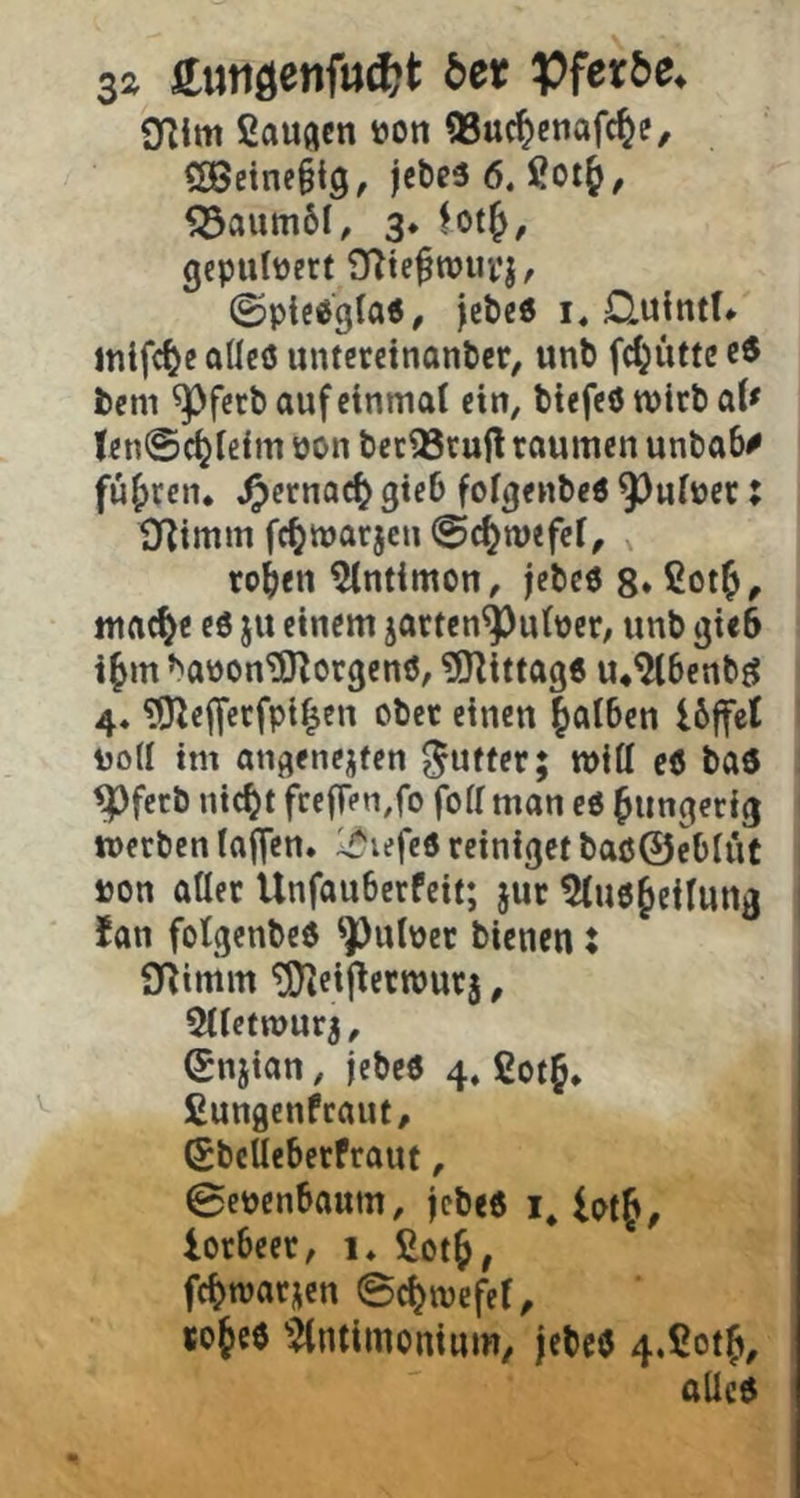 32 Lungensucht der Pferde.
Nim Laugen von Buchenasche,
Weineßig, jedes 6. Loth,
Baumöl, 3. Loth,
gepulvert Nießwurz,
Spiesglas, jedes 1. Quintl.
mische alles untereinander, und schütte es
dem Pferd auf einmal ein, dieses wird al-
len Schleim von der Brust raumen und ab-
führen. Hernach gieb folgendes Pulver:
Nimm schwarzen Schwefel,
rohen Antimon, jedes 8. Loth,
mache es zu einem zarten Pulver, und gieb
ihm davon Morgens, Mittags u. Abends
4. Messerspitzen oder einen halben Löffel
voll im angenezten Futter; will es das
Pferd nicht fressen, so soll man es hungerig
werden lassen. Dieses reiniget das Geblüt
von aller Unsauberkeit; zur Ausheilung
kan folgendes Pulver dienen:
Nimm Meisterwurz,
Aletwurz,
Enzian, jedes 4. Loth.
Lungenkraut,
Edelleberkraut,
Sevenbaum, jedes 1. Loth,
Lorbeer, 1. Loth,
schwarzen Schwefel,
rohes Antimonium, jedes 4. Loth,
alles